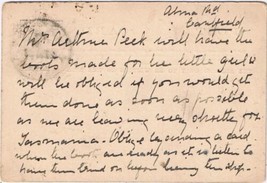 Alma Rd
Caulfield
Mrs Arthur Peck will have the
boots made for the little girl &
will be obliged if you would get
them done as soon as possible
as we are leaving very shortly for
Tasmania. Oblige by sending a card
when the boots are ready as it is better to
have them tried on before leaving the